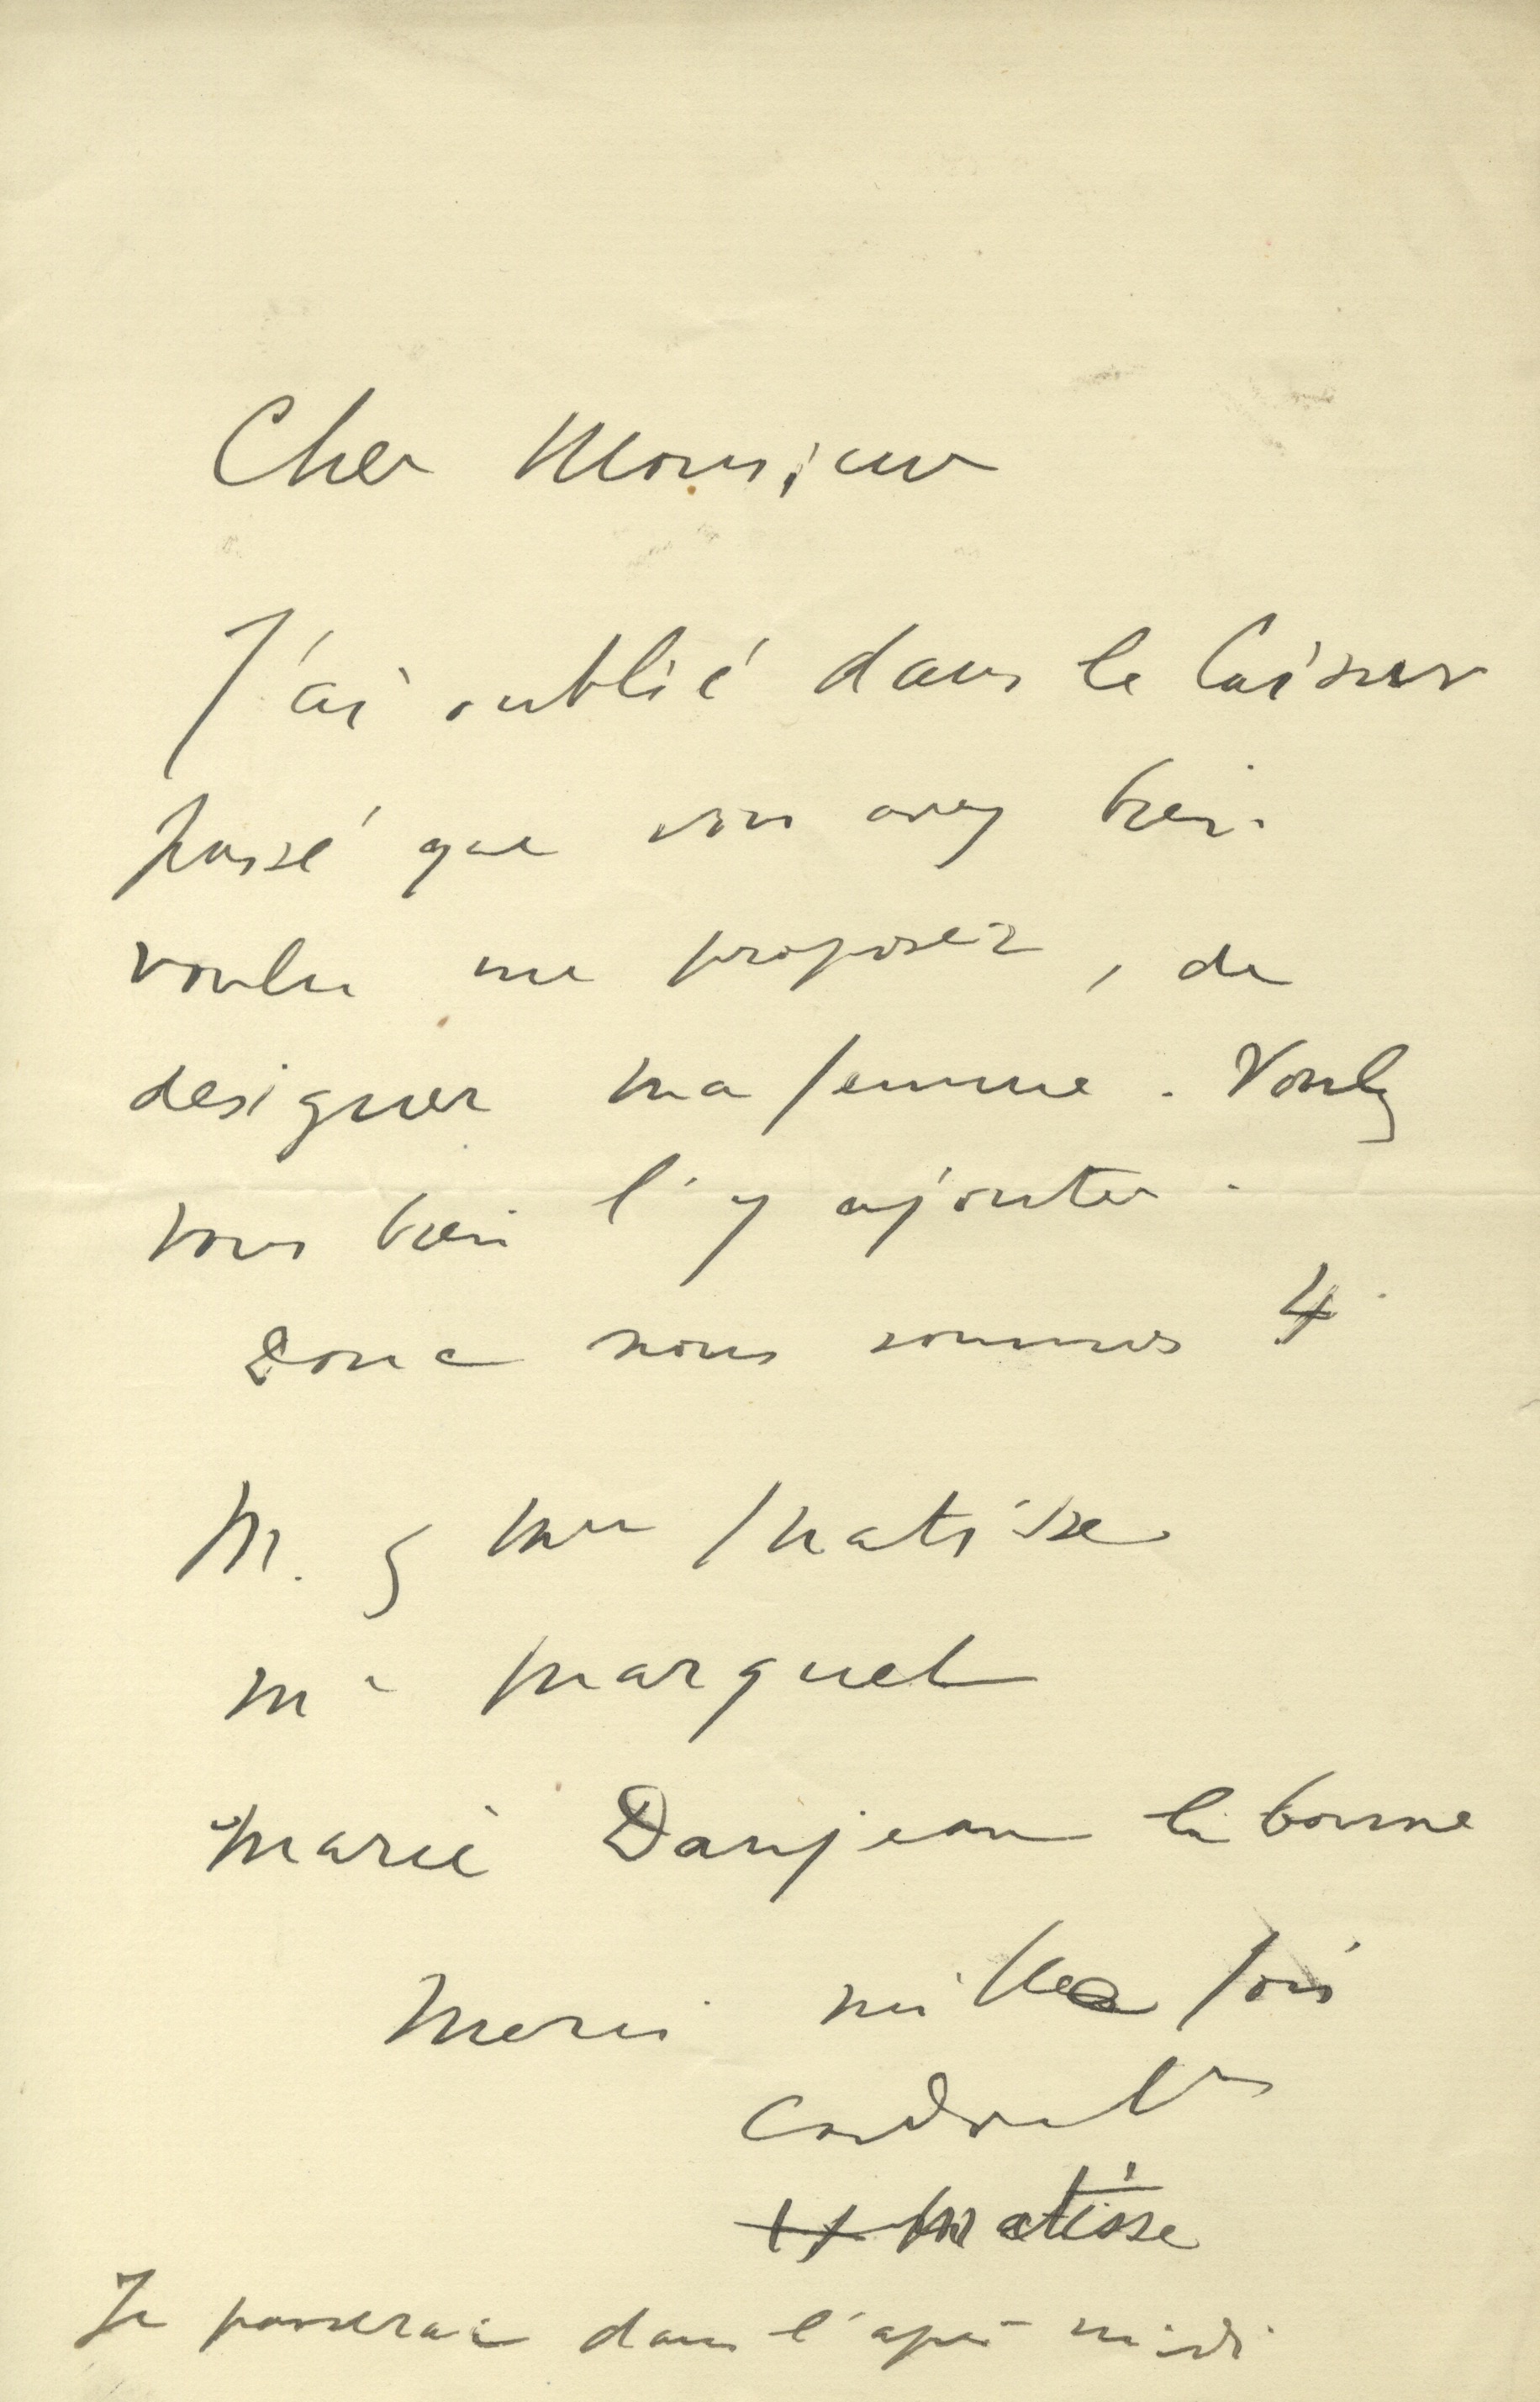 Cher Monsieur
J'ai oublié dans le laisser
passé que vous avez bien
voulu me proposer, de
designer ma femme. Voulez
vous bien l'y ajouter.
Donc nous sommes 4.
M. & Mme Matisse
Mr Marquet
Marie Danjean la bonne
Merci mille fois
Cordialt
H. Matisse
Je passerai dans l'après-midi